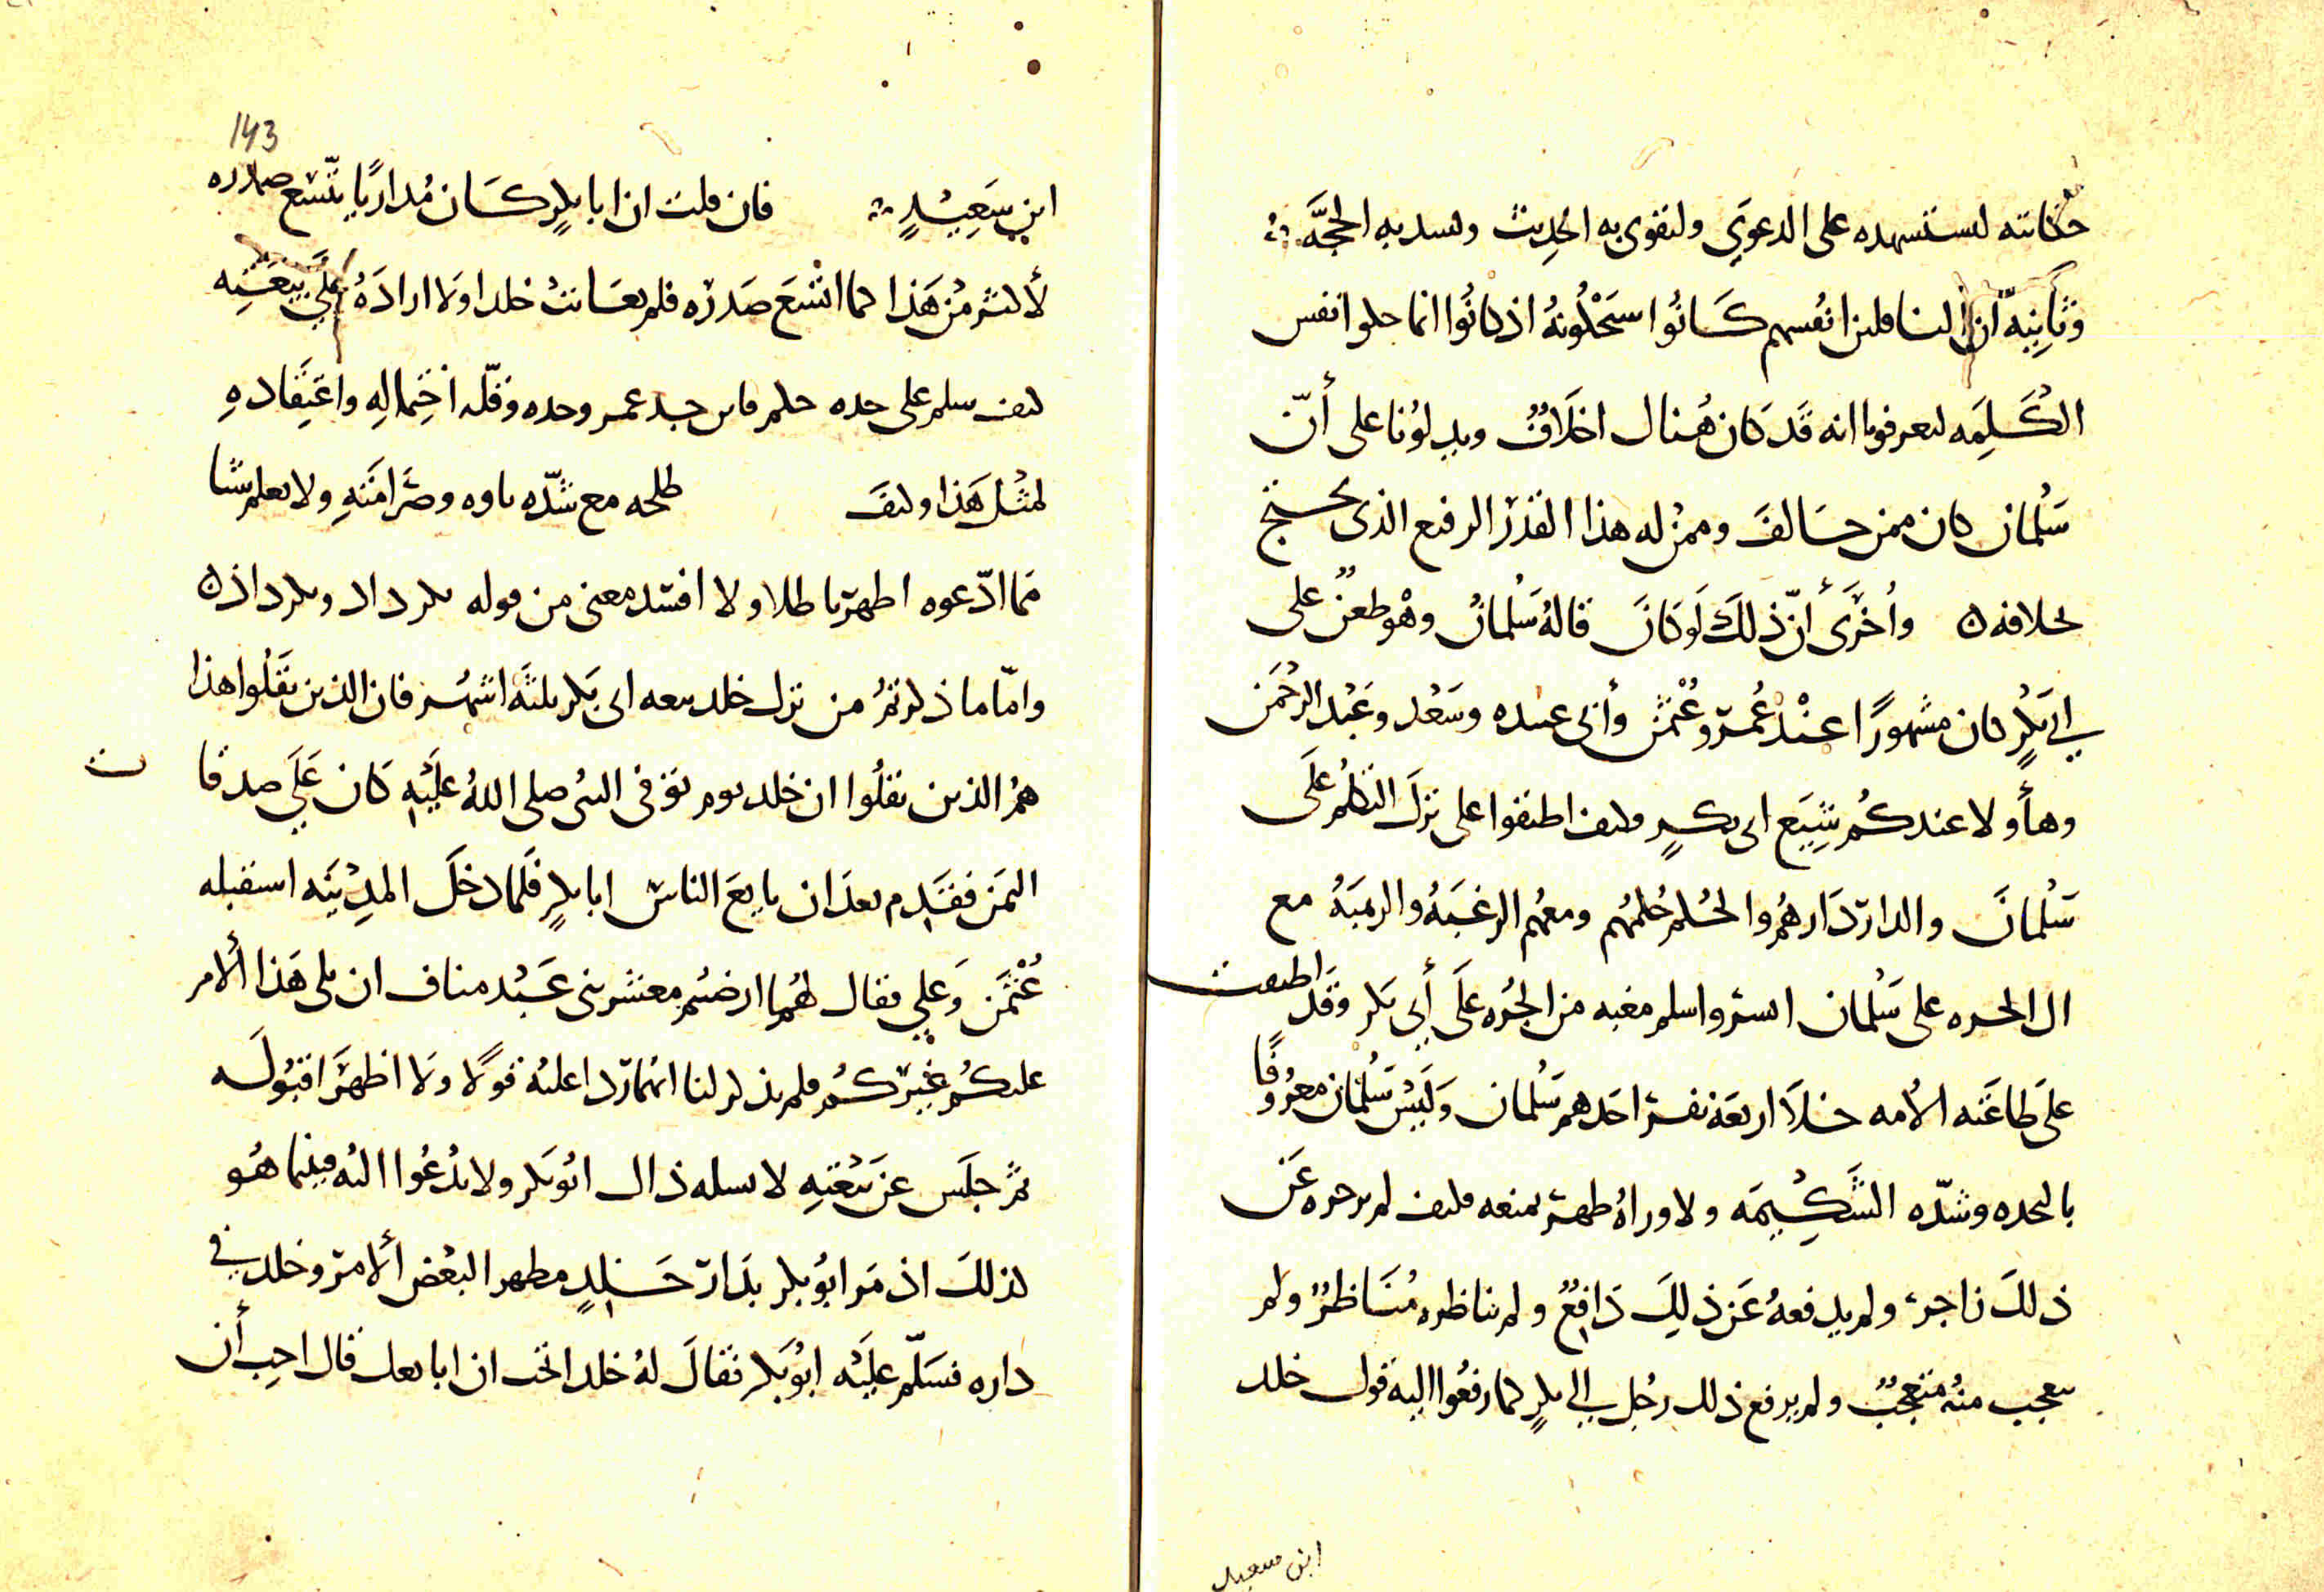 حكايته ليستشهده على الدعوى ولتقوى به الحديث ولسد به الحجّة
وثانيه أن الناقلين انفسهم كانوا سيحلونه اذ كانوا انما حلوا انفس
الكلمه ليعرفونا انه قد كان هناك اخلاف ويدلونا على أنّ
سلمان كان ممن خالف وممن له هذا القدر الرفيع الذى يحتج
بخلافه وأخرى أنّ ذلك لو كان قاله سلمان وهو طعن على
ابي بكر كان مشهورًا عند عمر وعثمن وأبى عبيده وسعد وعبد الرحمن
وهأولا عندكم شيع ابى بكر فكيف اطبقوا على ترك النكير على
سلمان والدار دارهم والحكم حكمهم ومعهم الرغبه والرهبه مع
ان الجره على سلمان ايسر واسلم مغبه من الجره على أبي بكر وقد اطبقت
على طاعته الأمه خلا اربعة نفر احدهم سلمان وليس سلمان معروفًا
بالنجده وشدّه الشكيمه ولا وراه ظهر يمنعه فكيف لم يزجره عن
ذلك زاجر ولم يدفعه عن ذلك دافع ولم يناظره مناظر ولم
يتعجب منه متعجب ولم يرفع ذلك رجل الى ابي بكر كما رفعوا اليه قول خلد
ابن سعيد
143
ابن سعيد فان قلت ان ابا بكر كان مداريًا يتسع صدره
لأكثر من هذا كما اتسع صدره فلم يعاتب خلدا ولا اراده على بيعته
كيف سلم على حده حلم من جد عمر وحده وقلّه احتماله واعتقاده
لمثل هذا وكيف طلحه مع شدّه باوه وصرامته ولا يعلم شيا
مما ادّعوه اظهر باطلا ولا افسد معنى من قوله كرداد ونكرداذ
وامّا ما ذكرتم من ترك خلد بيعه ابى بكر ثلثه اشهر فان الذين نقلوا هذا
هم الذين نقلوا ان خلد يوم توفى النبى صلى الله عليه كان على صدقات
اليمن فقدم بعد ان بايع الناس ابا بكر فلما دخل المدينه استقبله
عثمن وعلي فقال لهما ارضيتم معشر بنى عبد مناف ان يلى هذا الأمر
عليكم غيركم فلم يذكر لنا انهما ردا عليه قولا ولا اظهرا قبوله
ثم جلس عن بيعته لا يسله ذاك ابو بكر ولا يدعوا اليه فبينما هو
كذلك اذ مر ابو بكر بدار خلد مظهرا لبعض الأمر وخلد في
داره فسلّم عليه ابو بكر فقال له خلد اتحب ان ابايعك قال احب أن